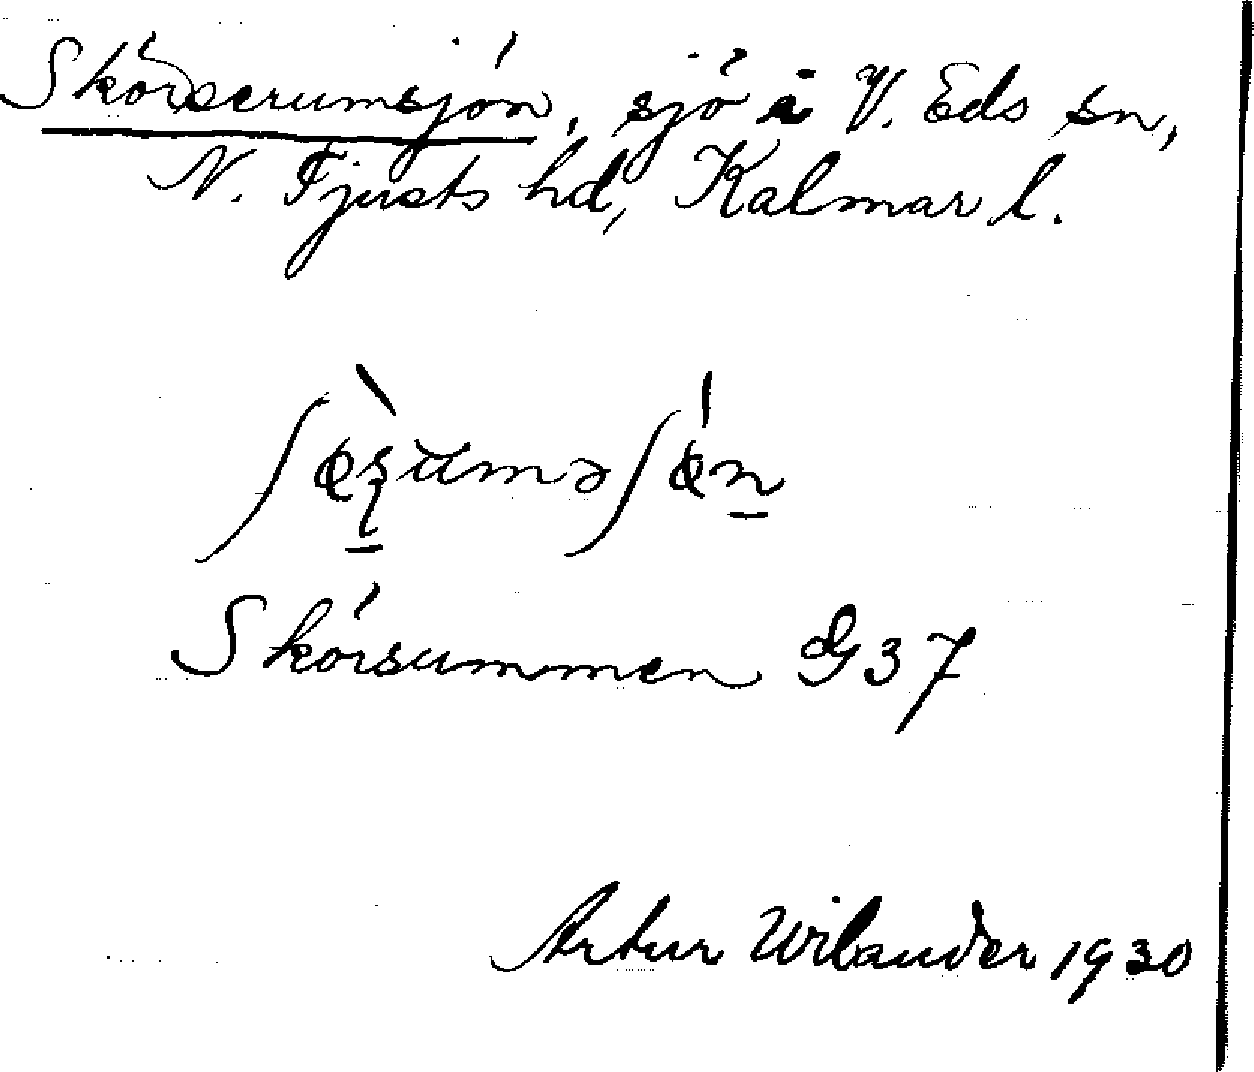 Skörserumsjön, sjö i V. Eds sn,
N. Tjusts hd, Kalmar l.
Skörsummen G 37
Artur Wilander 1930